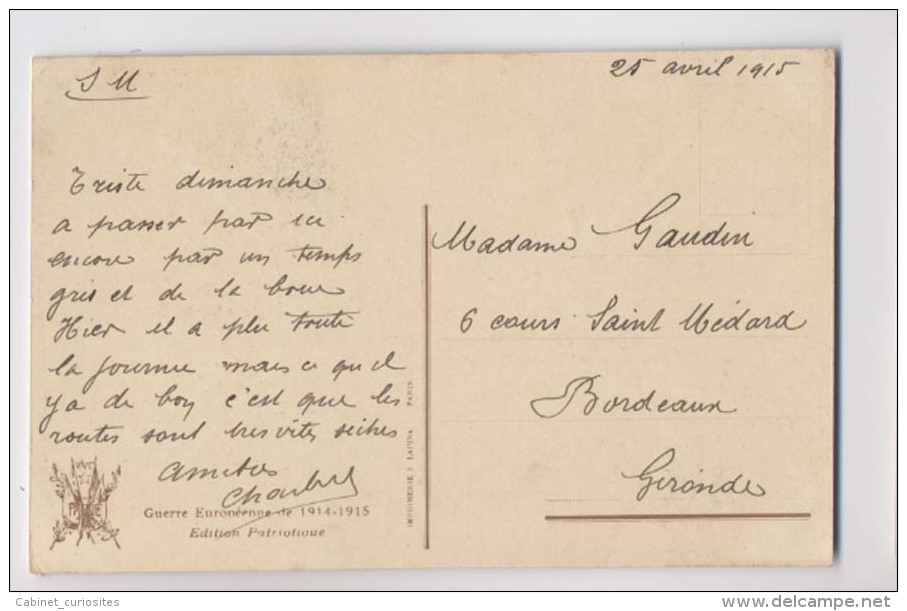 S M
25 avril 1915
Triste dimanche
a passer par ici
encore par un temps
gris et de la boue
Hier il a plu toute
la journee mais ce qu'il
y a de bon c'est que les
routes sont tres vites seches
Amities
Charles
Madame Gaudin
6 cours Saint Médard
Bordeaux
Gironde
VIVE
LA
FRANCE
Guerre Européenne de 1914-1915
Edition Patriotique
IMPRIMERIE I. LAPINA PARIS
Cabinet_curiosites
http://www.delcampe.net